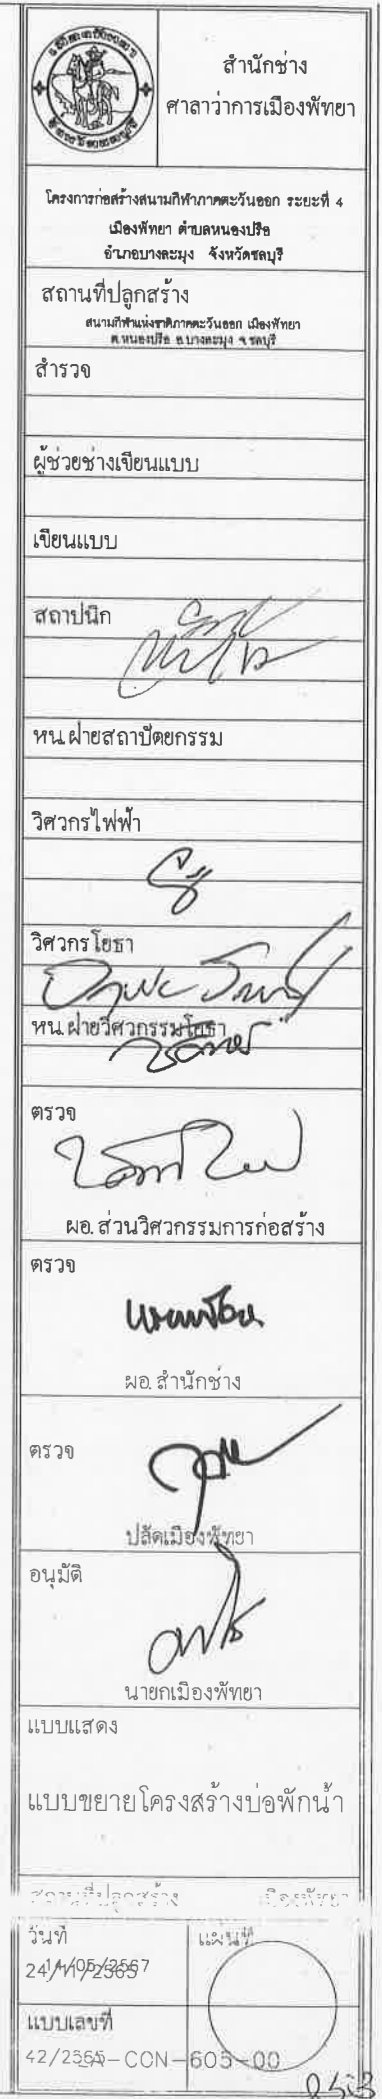 สำนักช่าง
ศาลาว่าการเมืองพัทยา
โครงการก่อสร้างสนามกีฬาภาคตะวันออก ระยะที่ 4
เมืองพัทยา ตำบลหนองปรือ
อำเภอบางละมุง จังหวัดชลบุรี
สถานที่ปลูกสร้าง
สนามกีฬาแห่งชาติภาคตะวันออก เมืองพัทยา
ต.หนองปรือ อ.บางละมุง จ.ชลบุรี
สำรวจ
ผู้ช่วยช่างเขียนแบบ
เขียนแบบ
สถาปนิก
หน.ฝ่ายสถาปัตยกรรม
วิศวกรไฟฟ้า
วิศวกรโยธา
หน.ฝ่ายวิศวกรรมโยธา
ตรวจ
ผอ.ส่วนวิศวกรรมการก่อสร้าง
ตรวจ
ผอ.สำนักช่าง
ตรวจ
ปลัดเมืองพัทยา
อนุมัติ
นายกเมืองพัทยา
แบบแสดง
แบบขยายโครงสร้างบ่อพักน้ำ
สถานที่ปลูกสร้าง เมืองพัทยา
วันที่ แผ่นที่
แบบเลขที่
-CON-605-00